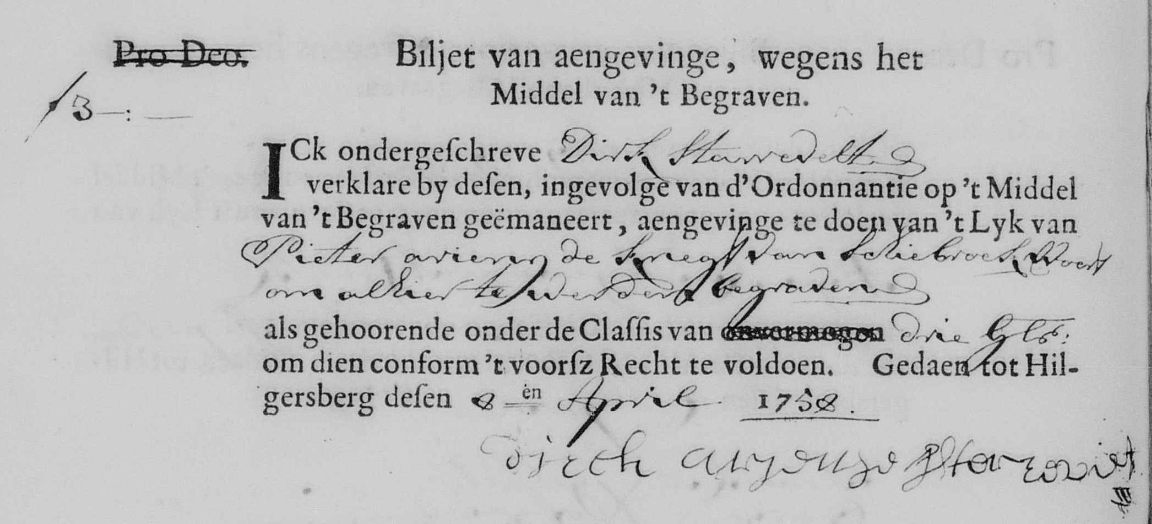 Pro Deo.
Biljet van aengevinge, wegens het
Middel van 't Begraven.
3-:-
ICk ondergeſchreve Dirk Starrevelt
verklare by deſen, ingevolge van d'Ordonnantie op 't Middel
van 't Begraven geëmaneert, aengevinge te doen van 't Lyk van
Pieter ariens de Knegt van Schiebroek Woort
om alhier te werden begraven
als gehoorende onder de Claſſis van onvermogen drie Gls:
om dien conform 't voorſz Recht te voldoen. Gedaen tot Hil-
gersberg deſen 8 èn April 1758.
dirck